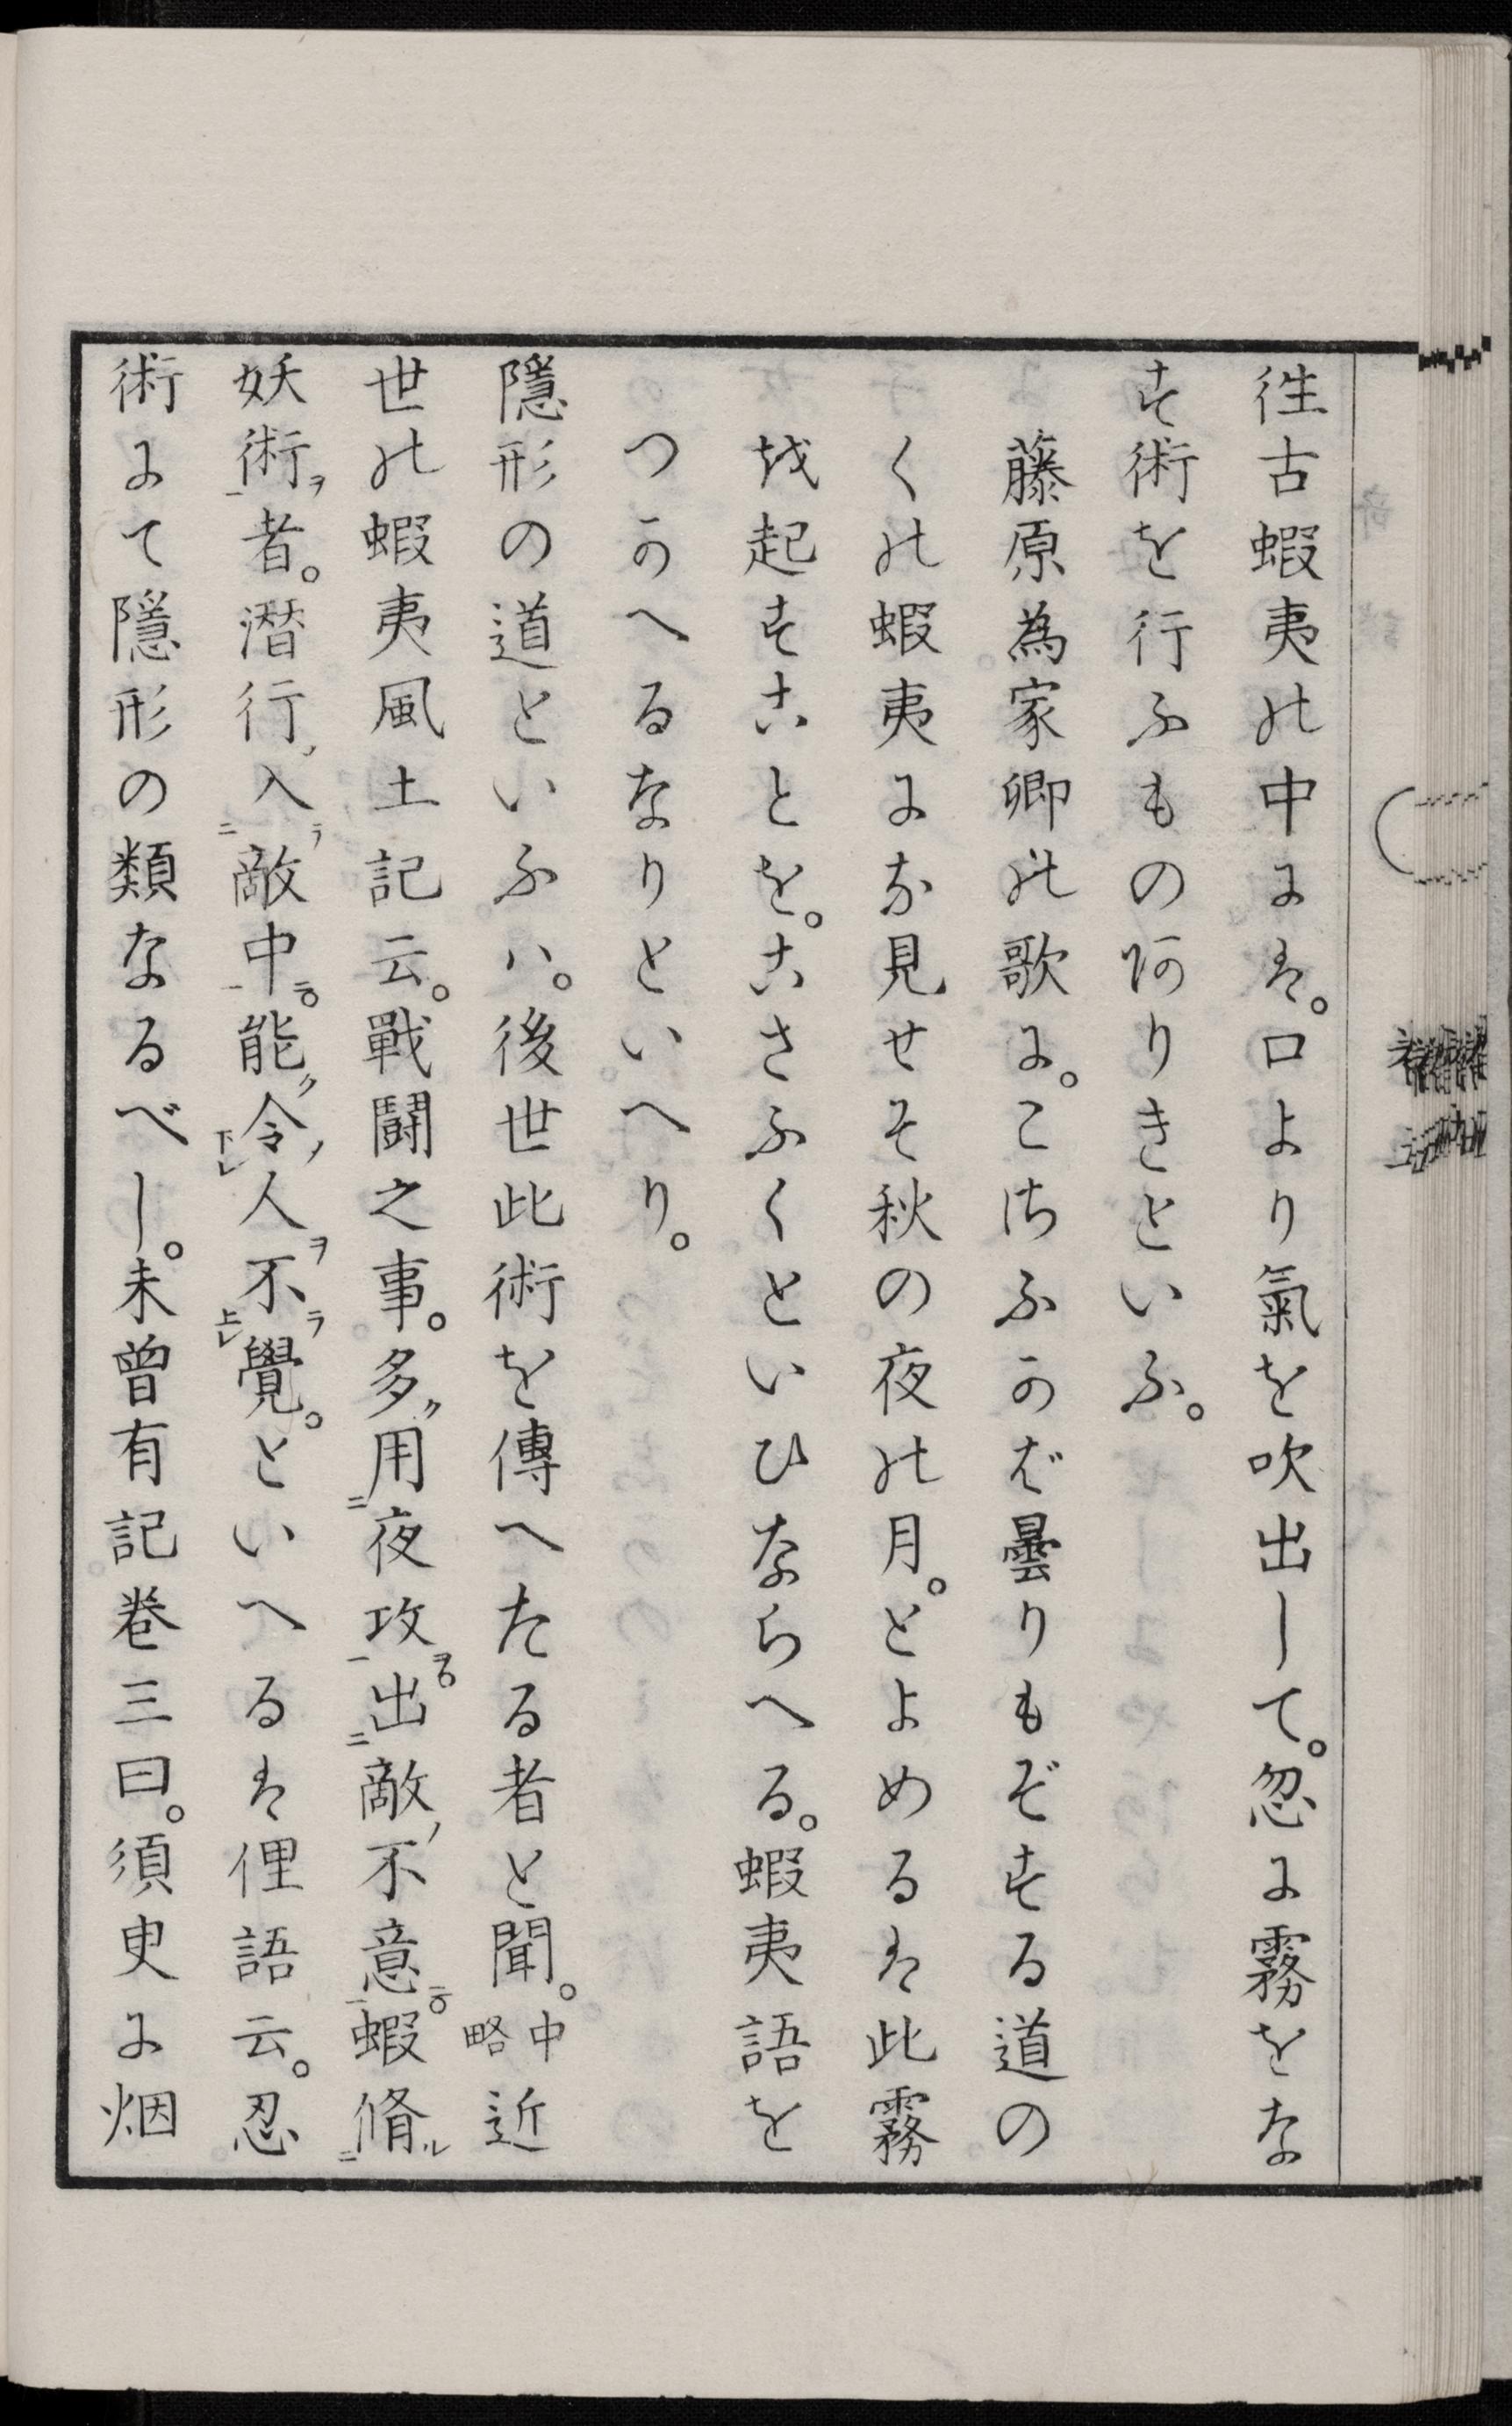 徃古蝦夷の中には。口より氣を吹出して。忽に霧をな
す術を行ふもの阿りきといふ。
藤原為家卿の歌に。こさふかば曇りもぞする道の
くの蝦夷にな見せそ秋の夜の月。とよめるは此霧
を起すことを。こさふくといひならへる。蝦夷語を
つかへるなりといへり。
隱形の道といふハ。後世此術を傳へたる者と聞。中略近
世の蝦夷風土記云。戰鬪之事。多ク用二夜攻一ヲ。出二敵ノ不意一ニ。蝦脩二ル
妖術一ヲ者。潛行ノ入二ラ敵中一ニ。能ク令下レノ人ヲ不上レラ覺。といへるは俚語云。忍
術にて隱形の類なるべし。未曽有記卷三曰。須臾に烟